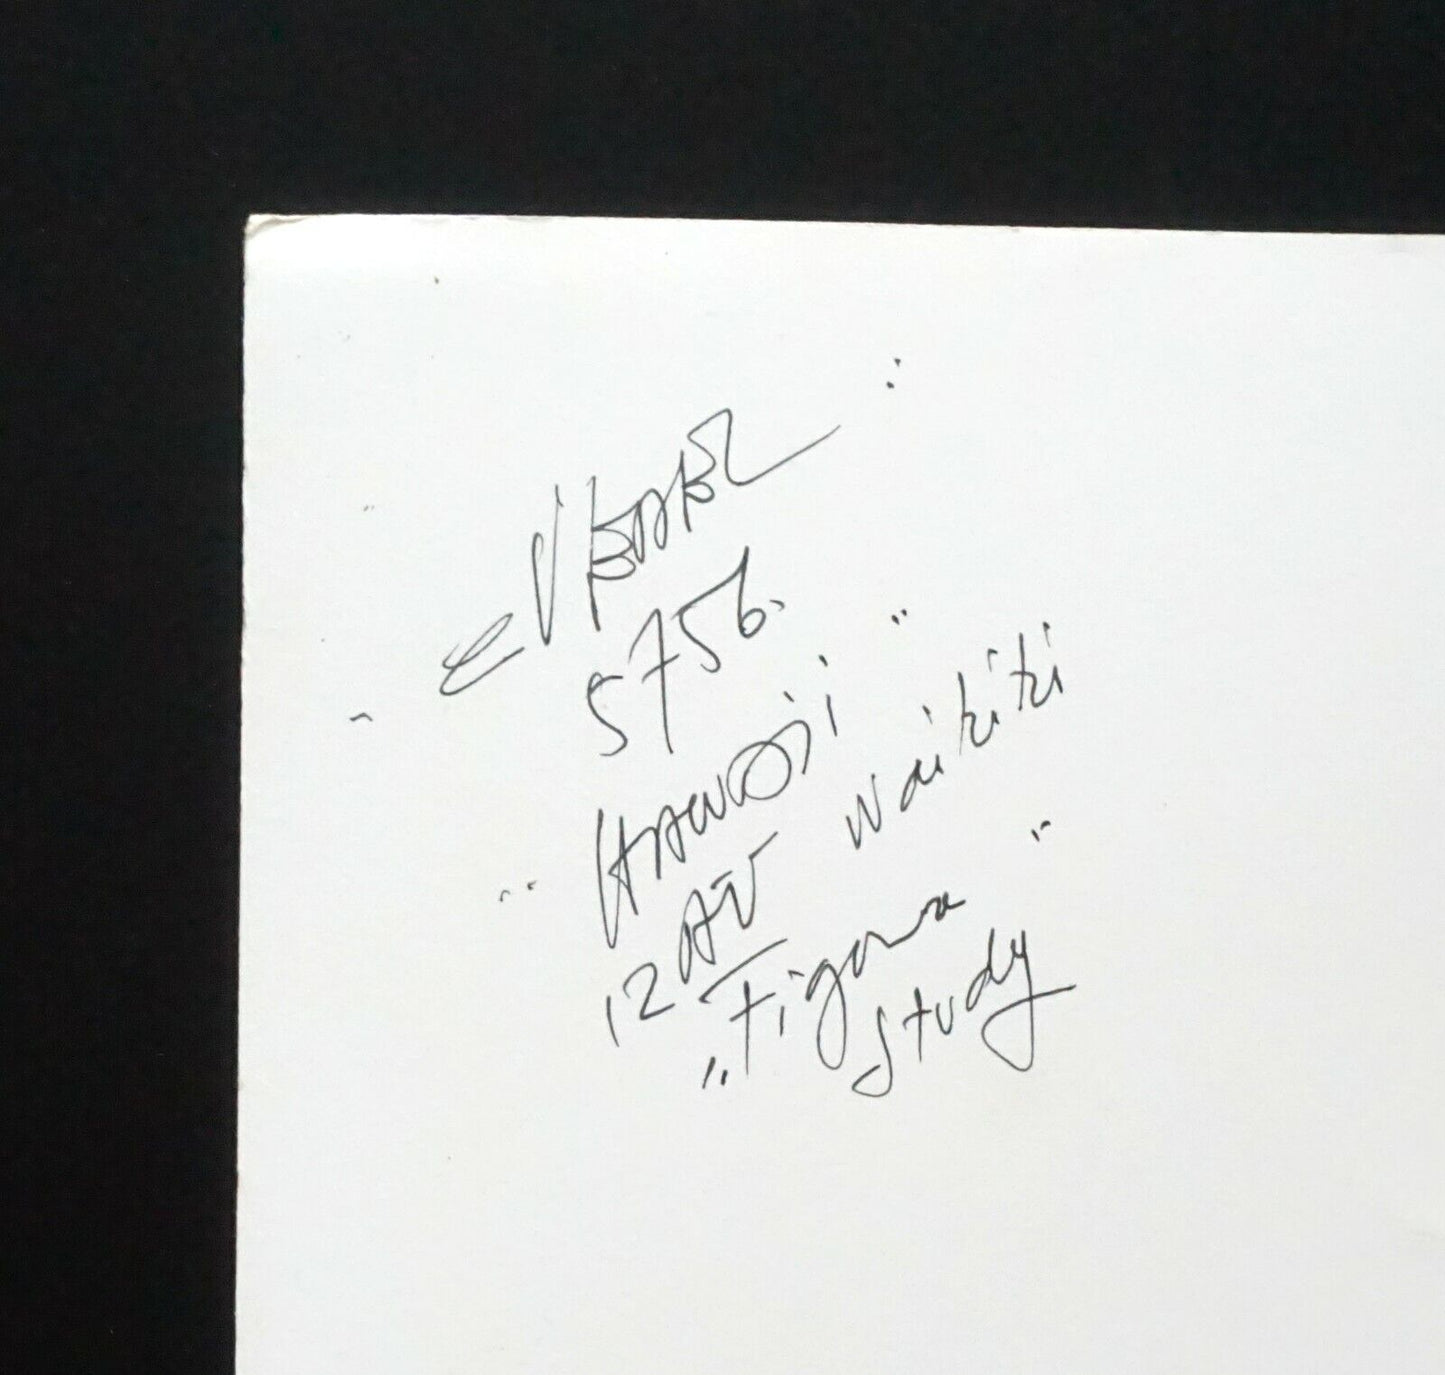 5756.
"HAWAII"
12 AV Waikiki
„Figura
study"